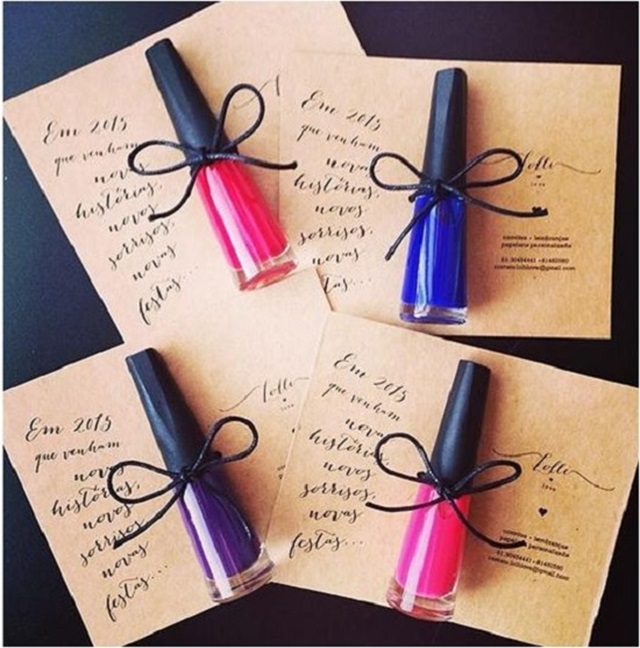 Em 2015
que venham
novas
histórias,
novos
sorrisos,
novas
festas...
Em 2015
que venham
nova
histórias,
novos
sorrisos,
novas
festas...
Lolli
love
convites • lembranças
papelaria personalizada
Em 2015
que venham
novas
histórias,
novos
sorrisos,
novas
festas...
Lolli
love
Em 2015
que venham
nova
histórias,
novos
sorrisos,
novas
festas...
Lolli
love
convites • lembranças
papelaria personalizada